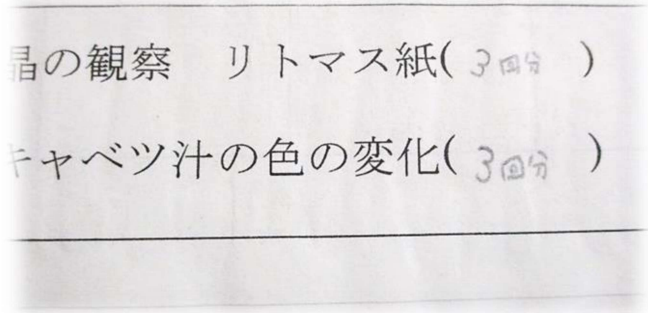 晶の観察 リトマス紙( 3回分 )
キャベツ汁の色の変化( 3回分 )